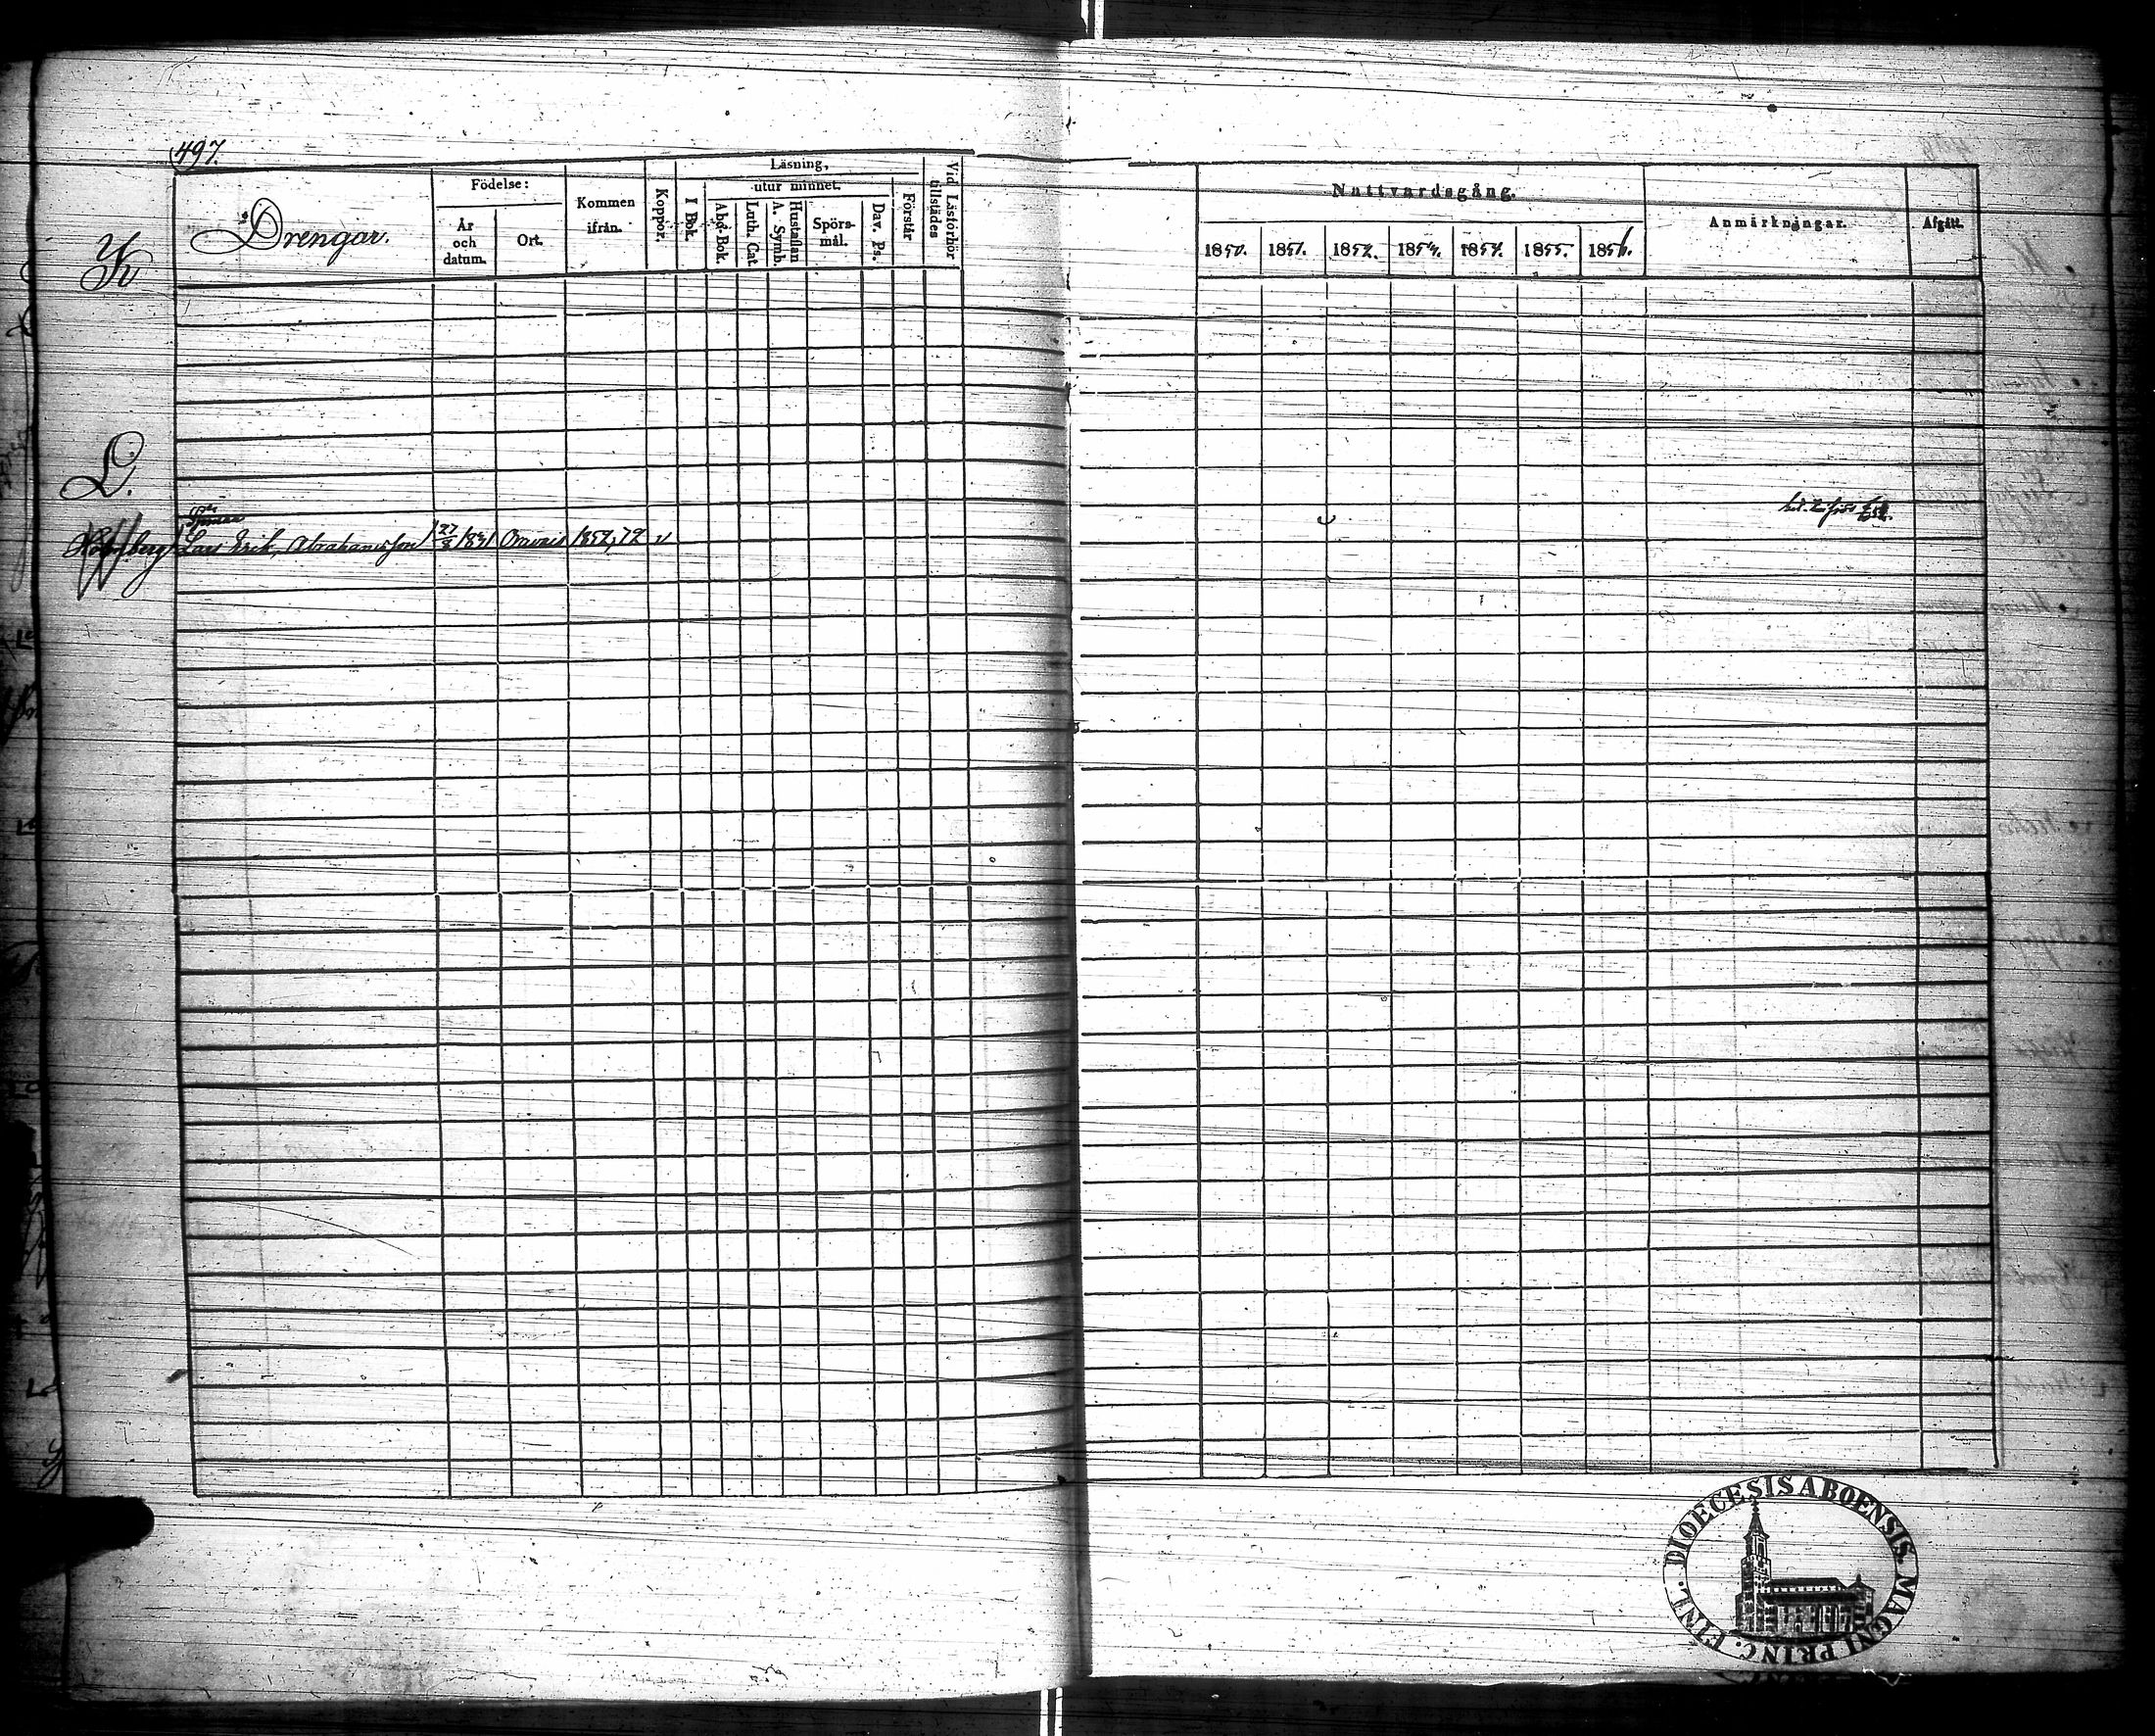 497.
Drengar.
Födelse:
År och datum.
Ort.
Kommen ifrån.
Koppor.
Läsning,
I Bok.
utur minnet.
Abcd. Bok.
Luth. Cat.
Hustaflan A. Symb.
Spörs-mål.
Dav. Ps.
Förstår
Vid Läsförhör tillstädes
Nattvardsgång.
1850. 1851. 1852. 1853. 1854. 1855. 1856.
Anmärkningar.
Afgått.
K
L.
Lars Erik, Abrahamsson 27/8 1831 Oravais 1852, 72 v
DIOECESIS ABOENSIS. MAGNI PRINC. FINL.